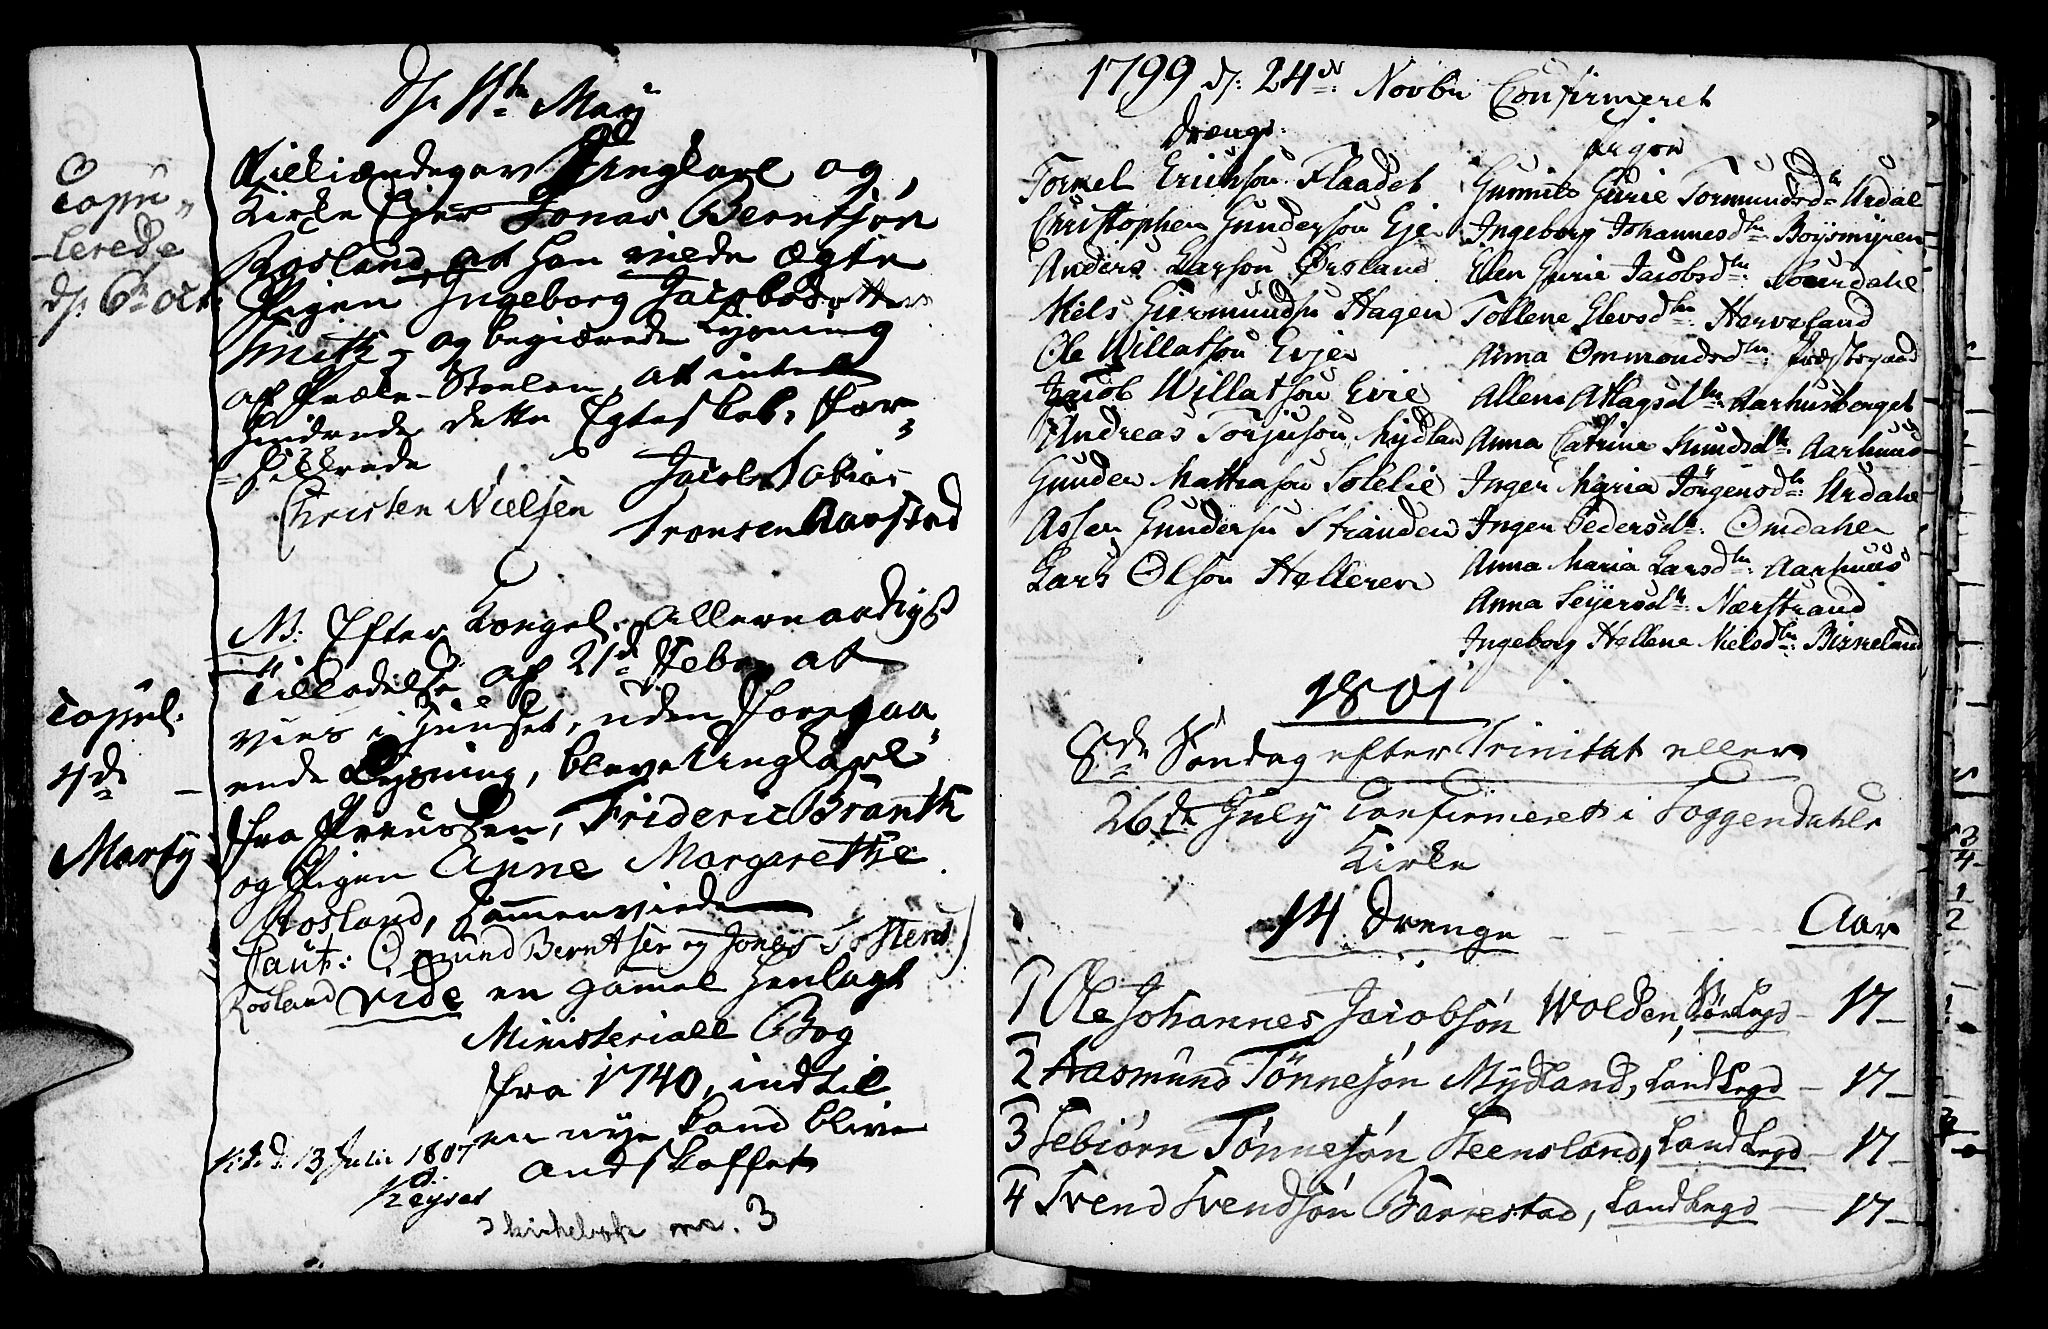 d: 11te May
Tilkiændegav Ungkarl og,
Kirke Ejer Jonas Berntsøn
Rosland, at han vilde Ægte
Pigen Ingeborg Jacobsdotter
Smith, og begiærede Lysning
af Præke-Stoelen, at intet
hindrede dette Egteskab, for-
sikkrede
Christen Nielsen
Jacob Tobias
Tronsen Barstad
Copu„
-lerede
d: 6t Oct.
NB: Efter Kongel: Allernaadigst
Tilladelse af 21de Febr, at
vies i Huuset, uden foregaa„
ende Lysning, bleve Ungkarl
fra Preussen, Frideric Branth
og Pigen Anne Margarethe
Rosland, Sammenviede
Caut: Omund Berntsen og Jones Tostens)
Rosland
Copul:
4de
Martij
vide en gamel henlagt
Ministeriall Bog
fra 1740, indtil
en nye kand blive
andskaffet
d: 13 Julii 1807
Keyser
> kirkebok nr. 3
1799 d: 24de Novbr Confirmeret
Drenge:
Tormel Erichson Flaadet
Christopher Gunderson Eje
Anders Larson Ørsland
Niels Giermundsn Hagen
Ole Willatson Evje
Jacob Willatson Evie
Andreas Torjuson Mydland
Gunder Mathiason Solelie
Asser Gundersn Stranden
Lars Olson Helleren
Piger
Gunnild Gurie Tormundsdtr Urdal
Ingeborg Johannesdtr Boysmyren
Elen Gurie Jacobsdtr: Sourdahl
Tollene Elevsdtr: Herveland
Anna Ommondsdtr: Præstegaard
Allene Atlagsdtr: Aarhusberget
Anna Catrine Knudsdtr: Aarhuus
Inger Maria Jörgensdtr: Urdahl
Inger Pedersdtr: Omdahl
Anna Maria Larsdtr: Aarhuus
Anna Seyersdtr: Nærstrand
Ingeborg Hellene Nielsdtr: Birkeland
1801
8de Søndag efter Trinitat eller
26de July Confirmeret i Soggendahls
Kirke
14 Drenge - - - Aar
1 Ole Johannes Jacobsøn Wolden, SøeLægd - 17 -
2 Aasmund Tönnesøn Mydland, LandLægd - 17 -
3 Tebiørn Tønnesøn Steensland, LandLægd - 17 -
4 Svend Svendsøn Barrestad, LandLægd - 17 -